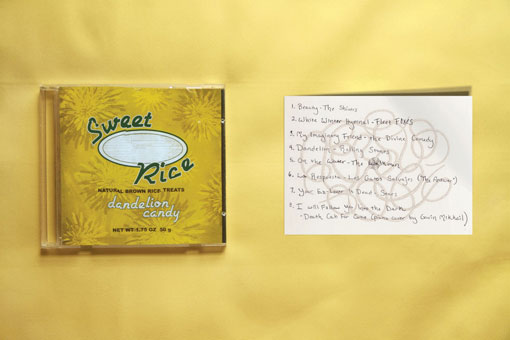 Sweet
Rice
NATURAL BROWN RICE TREATS
dandelion
candy
NET WT 1.75 OZ 50 g
1. Beauty - The Shivers
2. White Winter Hymnal - Fleet Foxes
3. My Imaginary Friend - The Divine Comedy
4. Dandelion - Rolling Stones
5. On the Water - The Walkmen
6. La Respuesta - Los Gatos Salvajes (The
7. Your Ex-Lover Is Dead - Stars
8. I will Follow You into the Dark
- Death Cab For Cutie (piano cover by Gavin Mikhail)